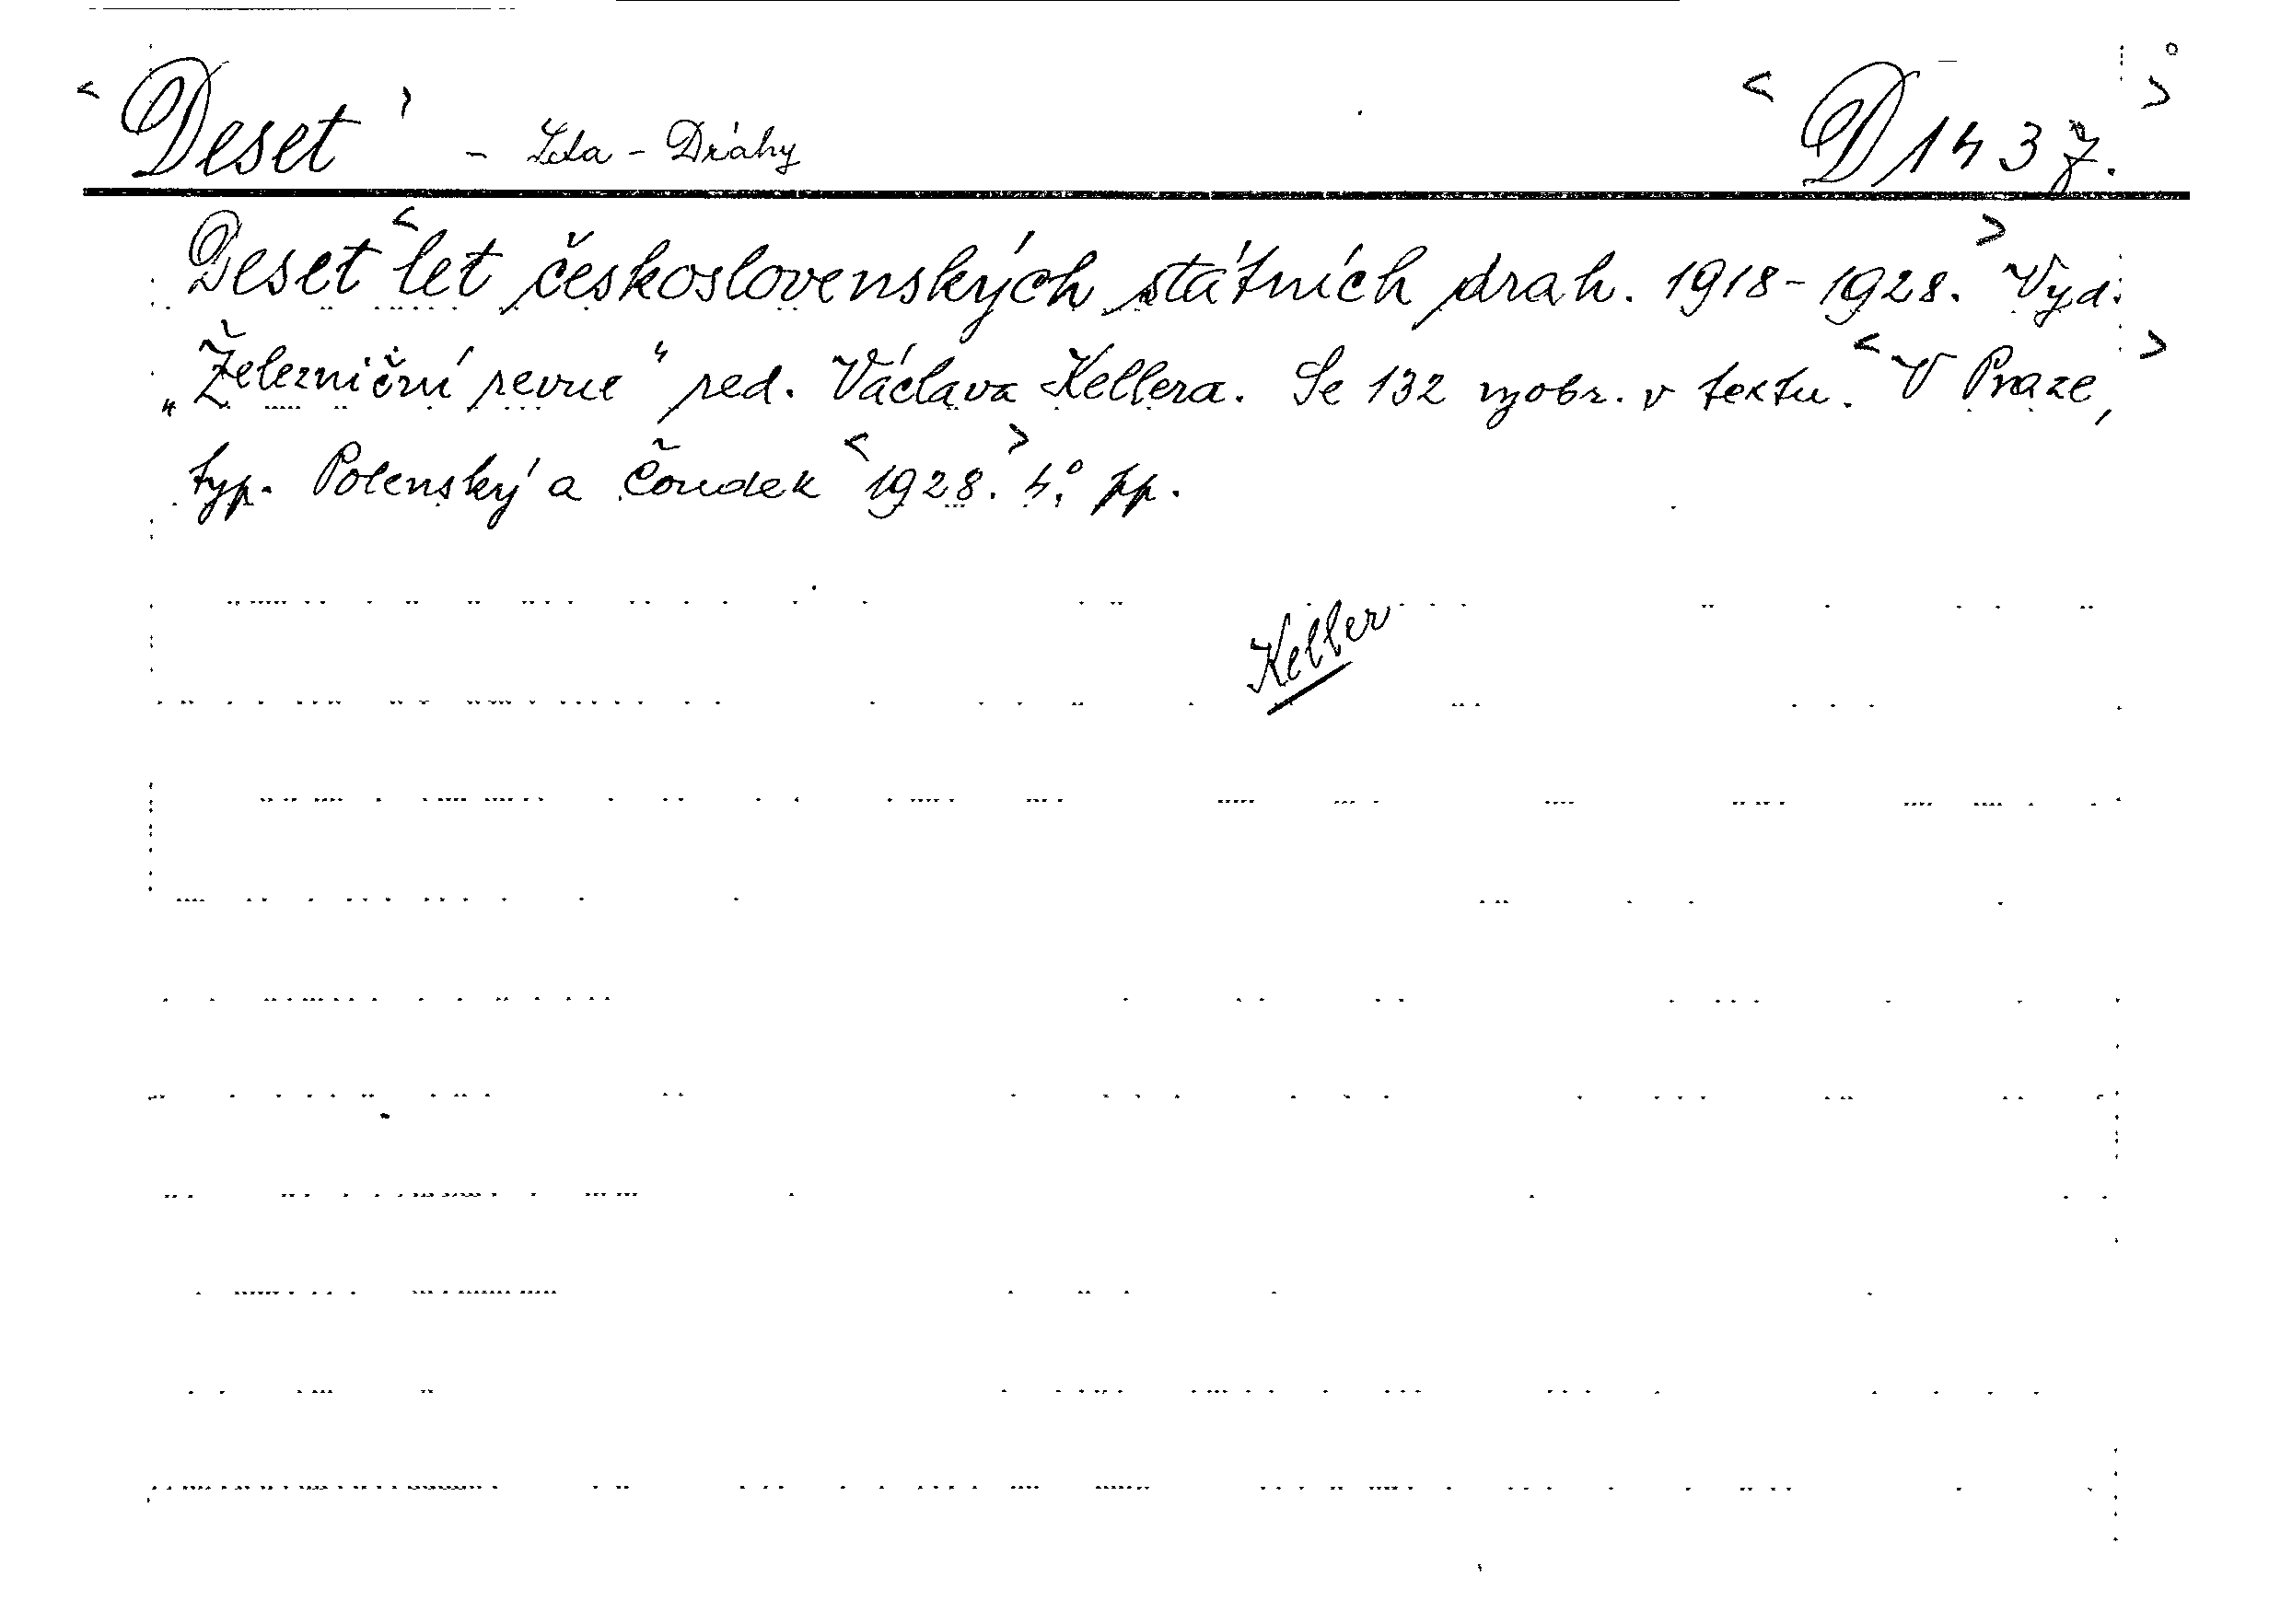 < Deset > - Leta - Dráhy < D 1437. >
Deset < let československých státních drah. 1918-1928. > Vyd.
„Železniční revue" red. Václava Kellera. Se 132 vyobr. v textu. < V Praze, >
typ. Polenský a Čoudek < 1928. > 4.° pp.
Keller